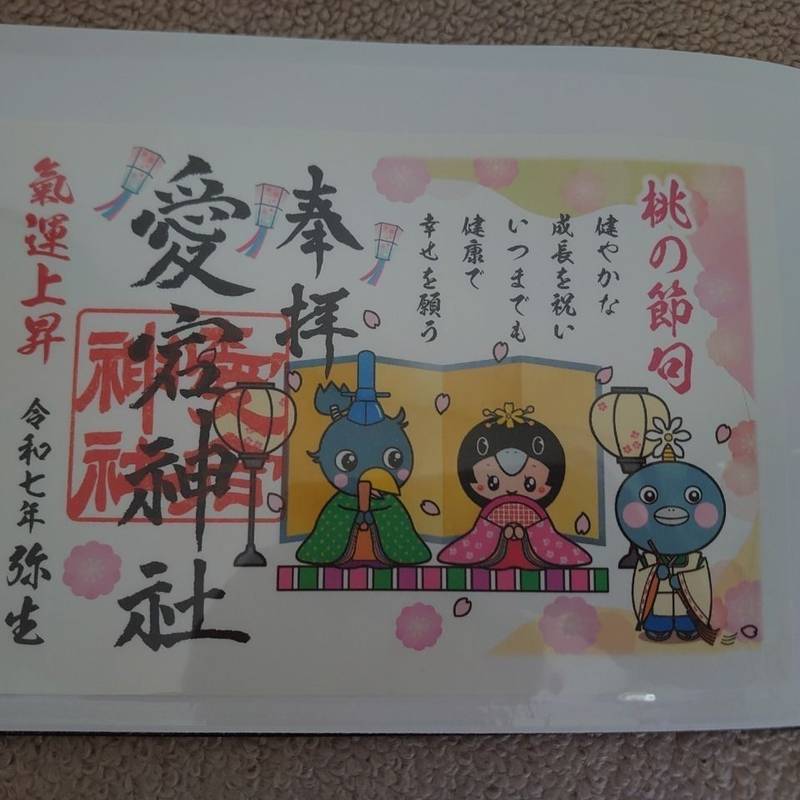 桃の節句
健やかな
成長を祝い
いつまでも
健康で
幸せを願う
奉拝
愛宕神社
愛宕
神社
氣運上昇
令和七年 弥生